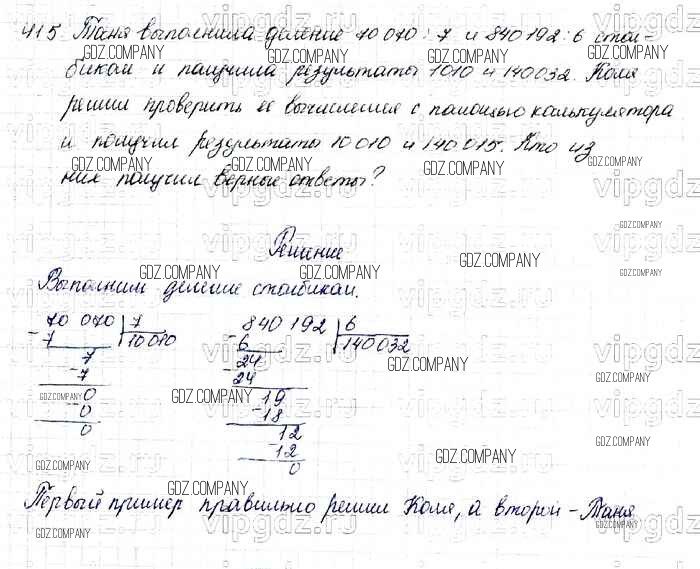 415 Таня выполнила деление 70 070 : 7 и 840 192 : 6 стол-
биком и получила результаты 1010 и 140032. Коля
решил проверить её вычисления с помощью калькулятора
и получил результаты 10 010 и 140 015. Кто из
них получил верные ответы?
Решение
Выполним деление столбиком.
70 070 7
- 7 10 010
7
- 7
0
- 0
0
840 192 6
- 6 140 032
24
- 24
19
- 18
12
- 12
0
Первый пример правильно решил Коля, а второй - Таня
GDZ.COMPANY
vipgdz.ru